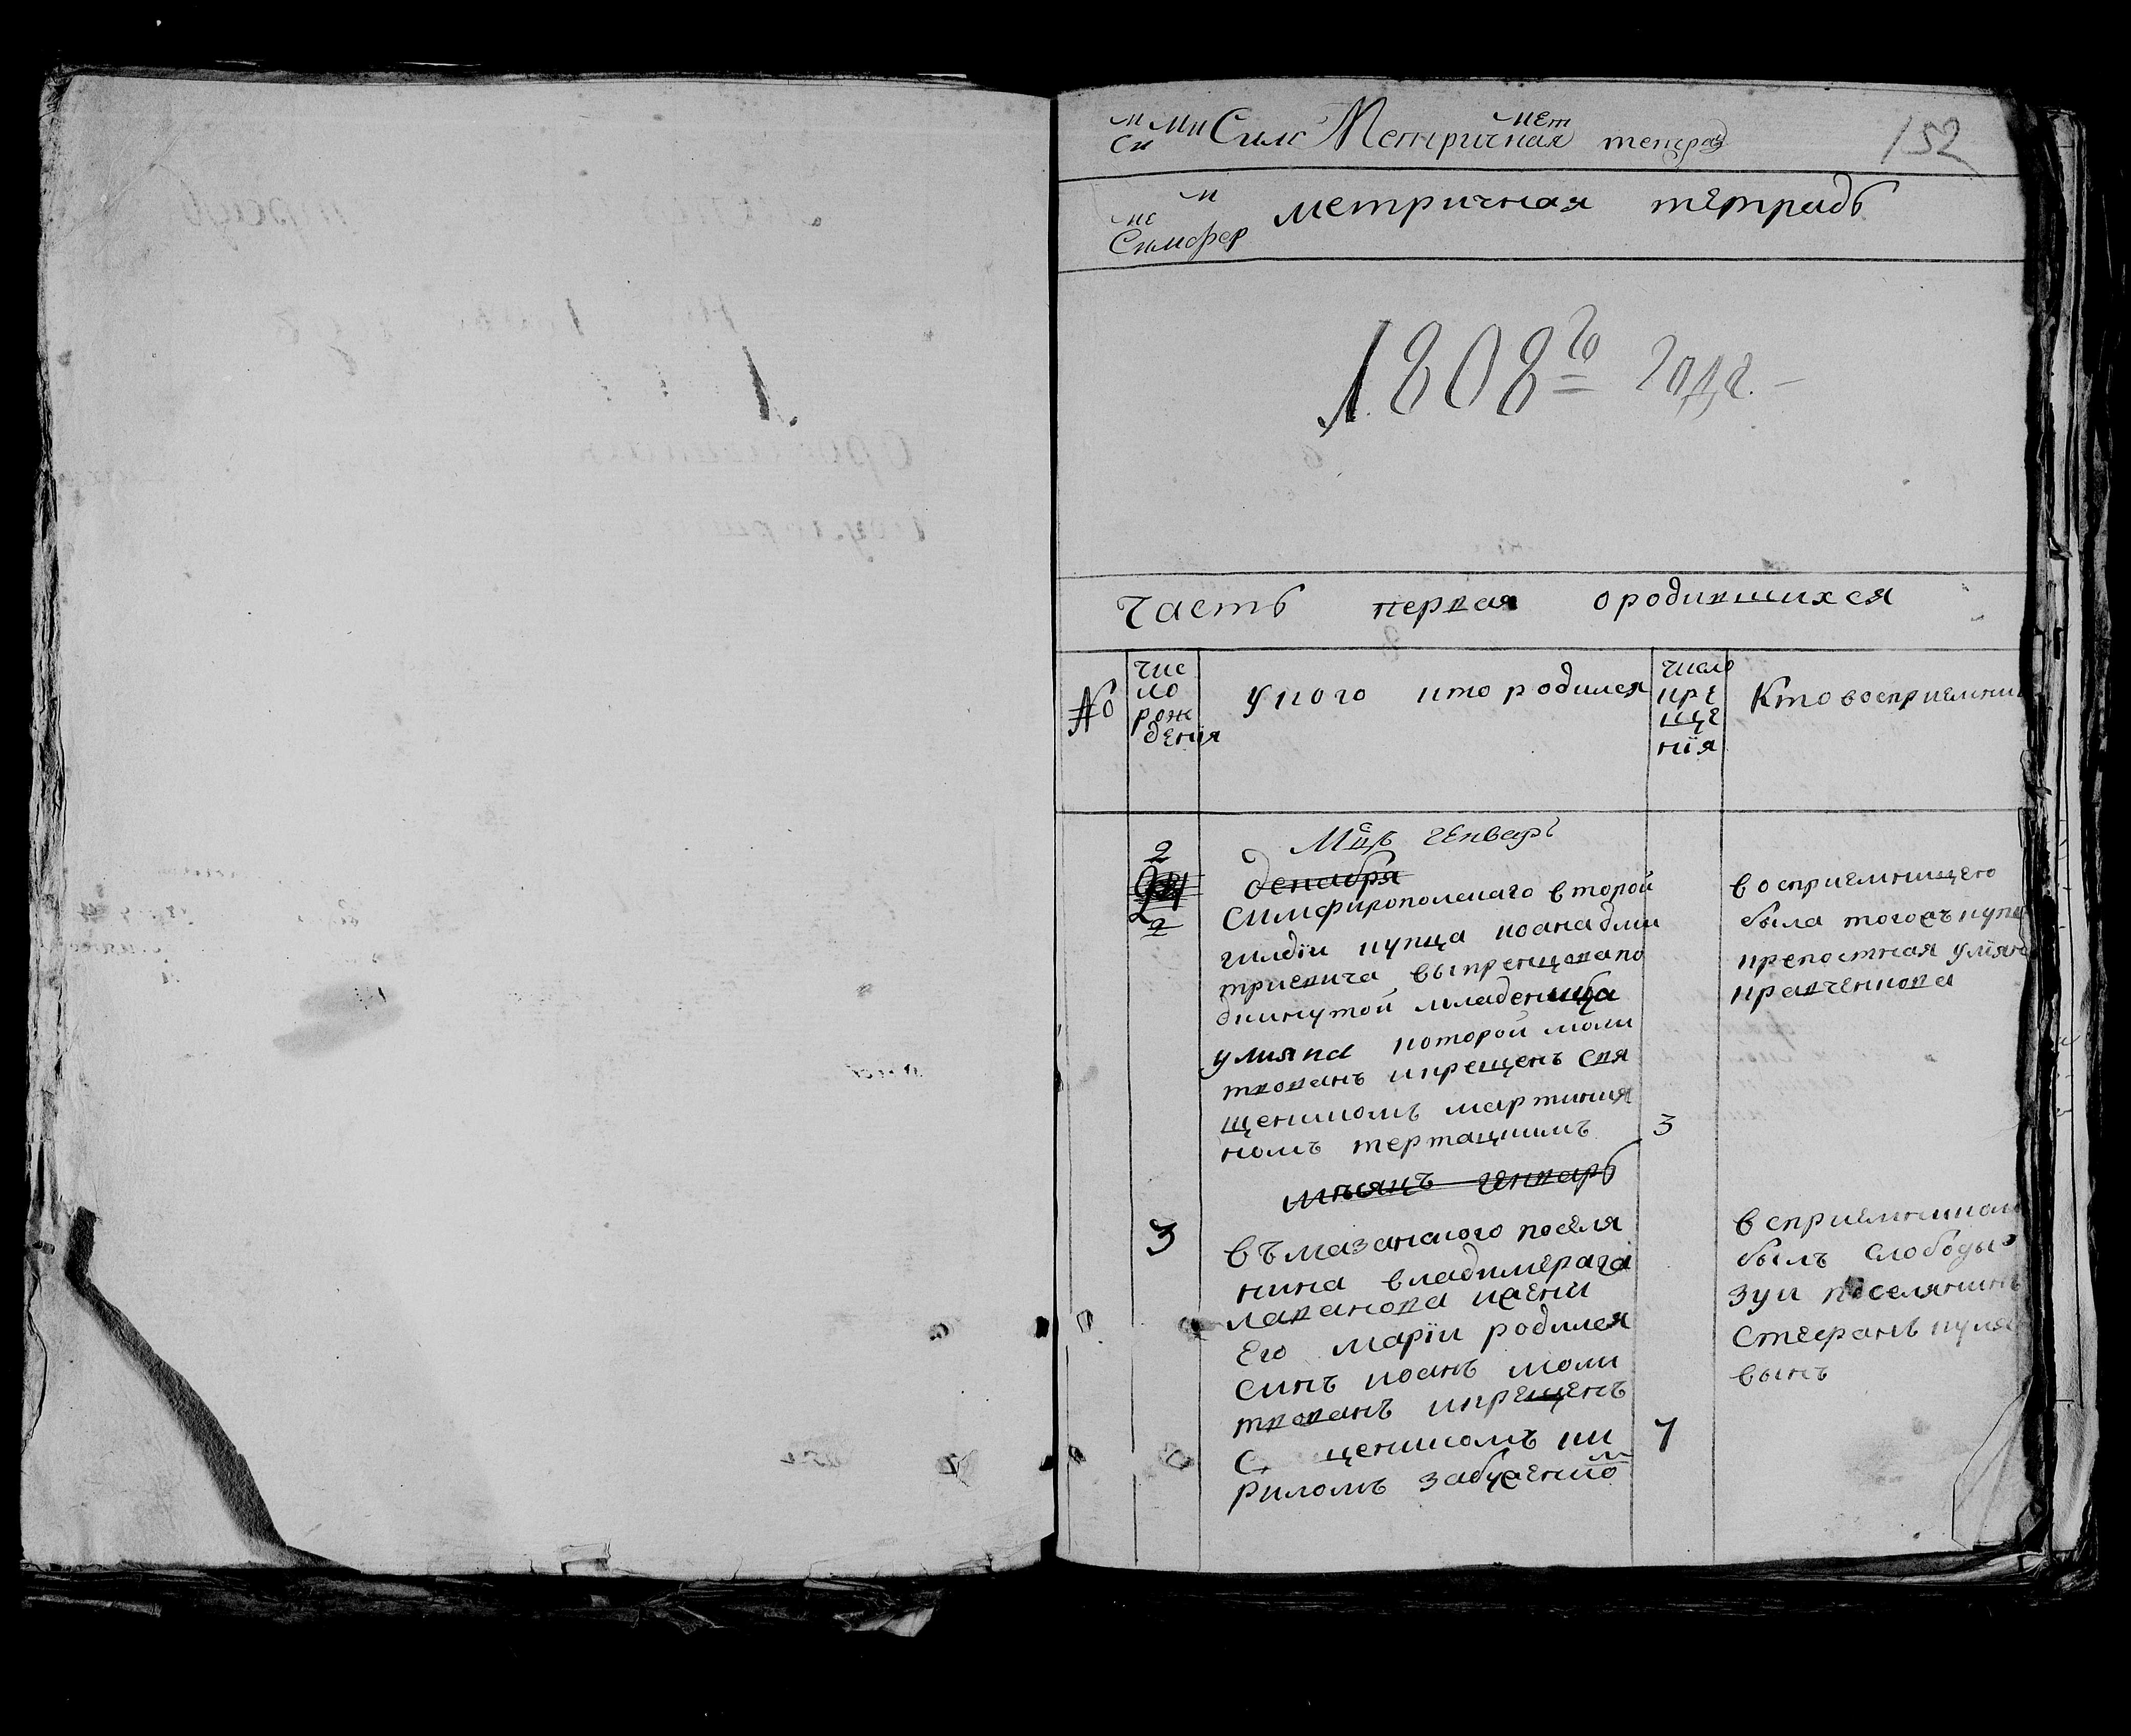 м ми Симс Метричная мет тетрад
си
152
м
ме метричная тетрадь
Симфер
1808го года.
Часть первая ородившихся
№
чис
ло
рож
денія
у кого кто родился
число
кре
ще
нія
Кто восприемни
Мцъ Генварь
2
декабря
2
2
симфирополскаго второй
гилдіи купца иоана дми
триевича выкренцова по
дкинутой младеница
улияна которой моли
твованъ икрещенъ свя
щеникомъ мартиния
номъ тертацкимъ
3
восприемницею
была тогожъ купц
крепостная уліяна
кравченкова
мѣсяцъ генварь
3
въ мазанского поселя
нина владимера га
лаванова ижени
Его маріи родился
синъ иоанъ моли
твованъ икрещенъ
с щеникомъ ки
риломъ забужениом
7
восприемником
былъ слободы
зуи поселянинъ
Стефанъ куля
вынъ